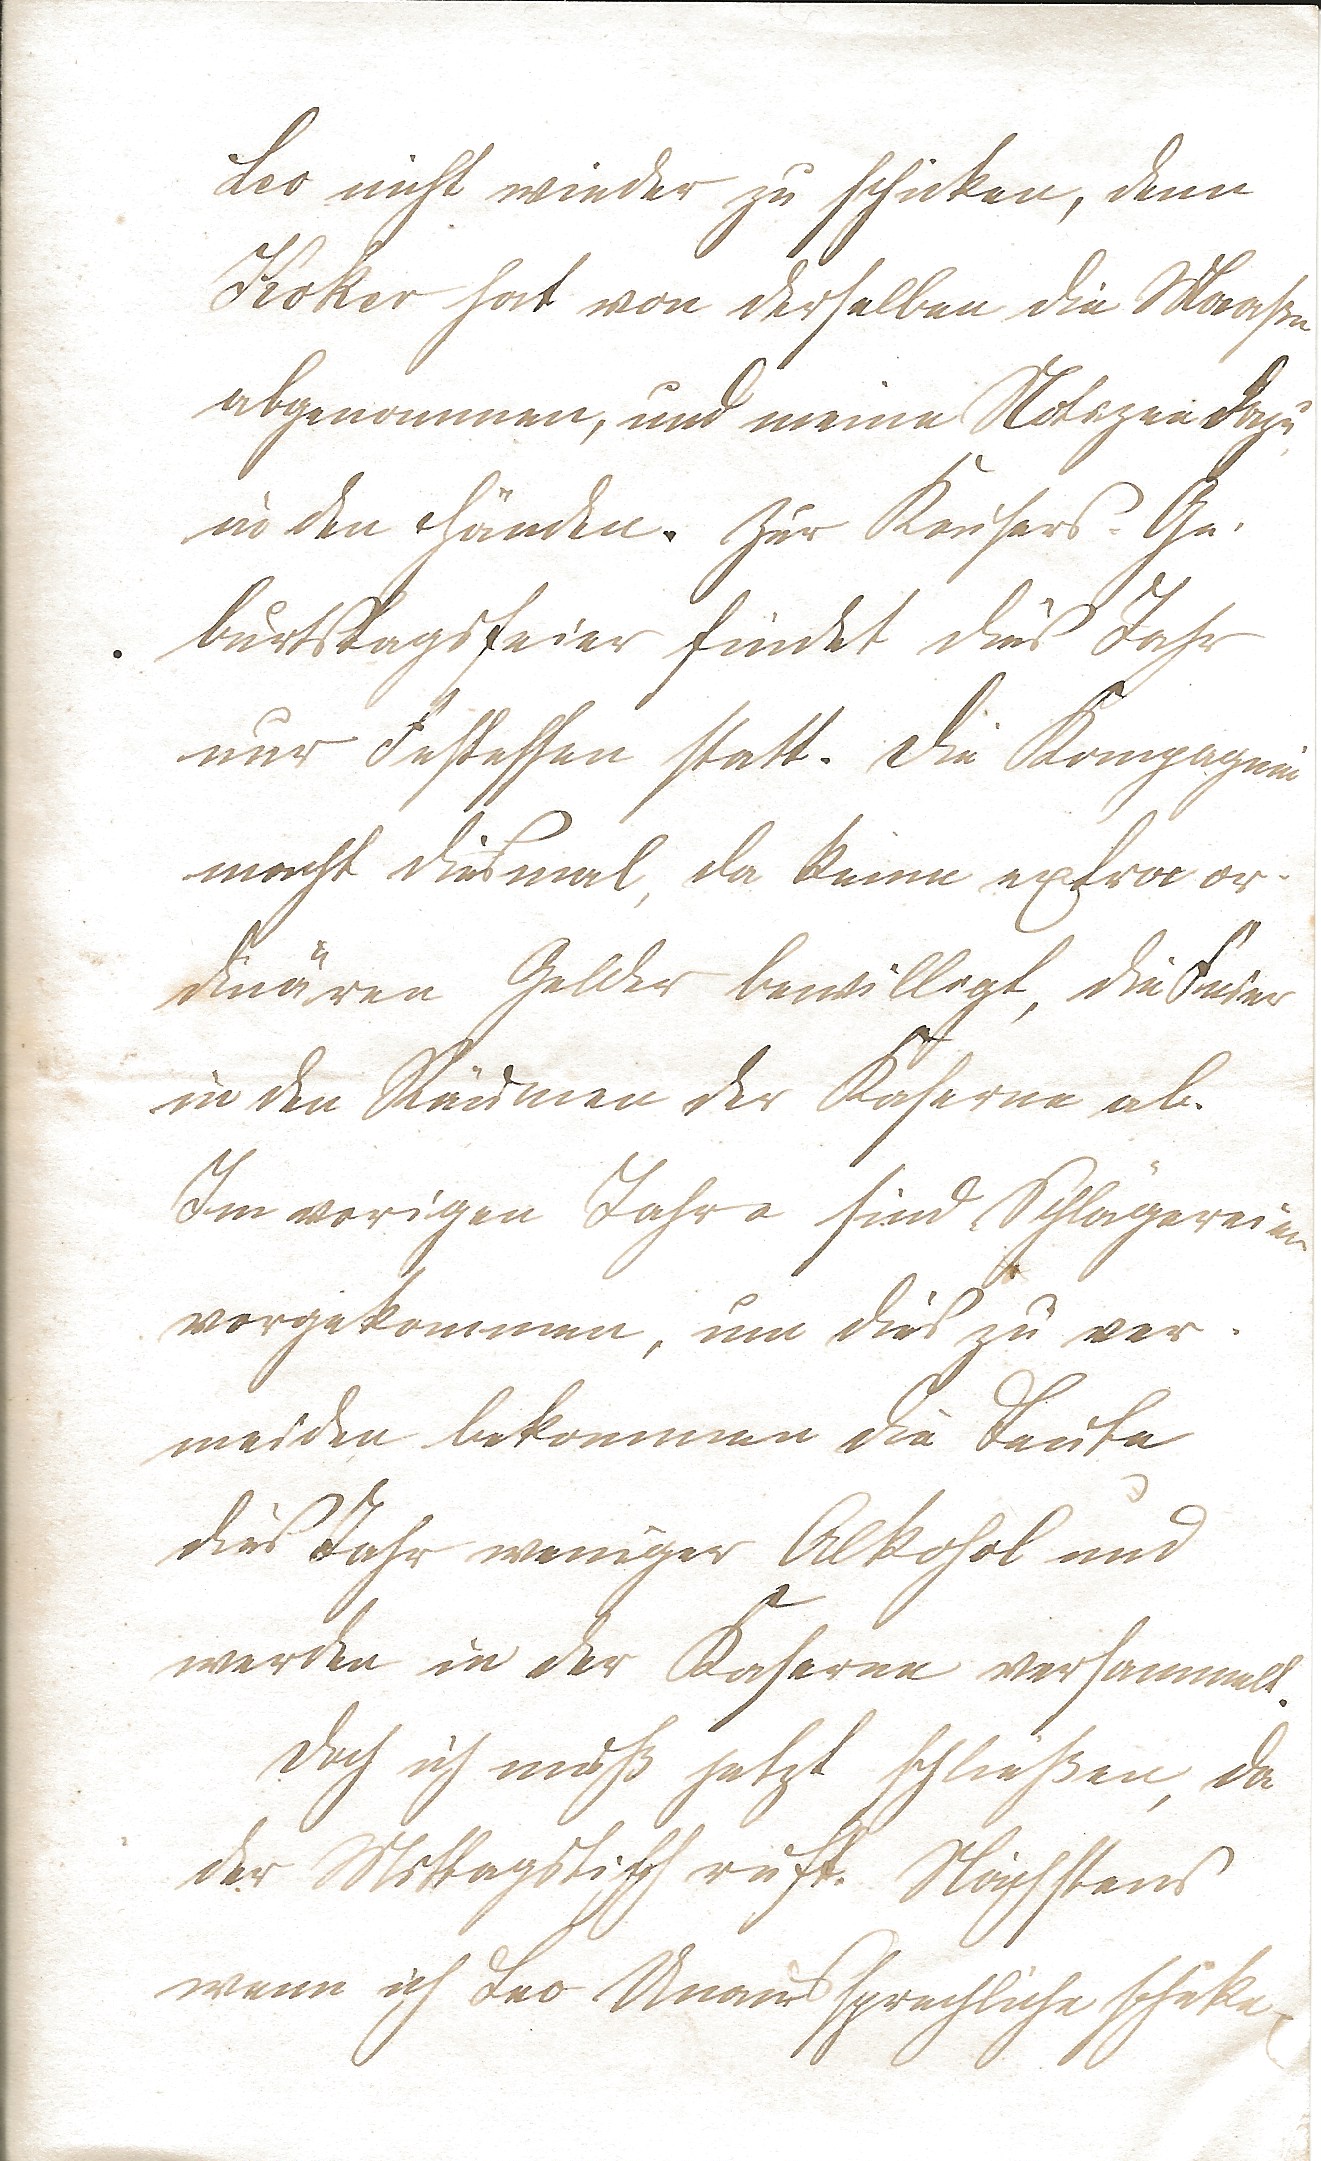 Leo nicht wieder zu schicken, denn
Koker hat von derselben die Maaße
abgenommen, und meine Notizen dazu
in den Händen. Zur Kaisers-Ge-
burtstagsfeier findet dies Jahr
nur Festessen statt. Die Kompagnie
macht diesmal, da keine extraor-
dinären Gelder bewilligt, die Feier
in den Räumen der Kaserne ab.
Im vorigen Jahre sind Schlägereien
vorgekommen, um dies zu ver-
meiden bekommen die Leute
dies Jahr weniger Alkohol und
werden in der Kaserne versammelt.
Doch ich muß jetzt schließen, da
der Mittagstisch ruft. Nächstens
wenn ich Leo Unaussprechliche schicke